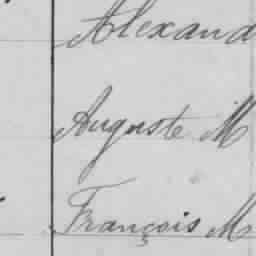 Alexand
Auguste M
François M